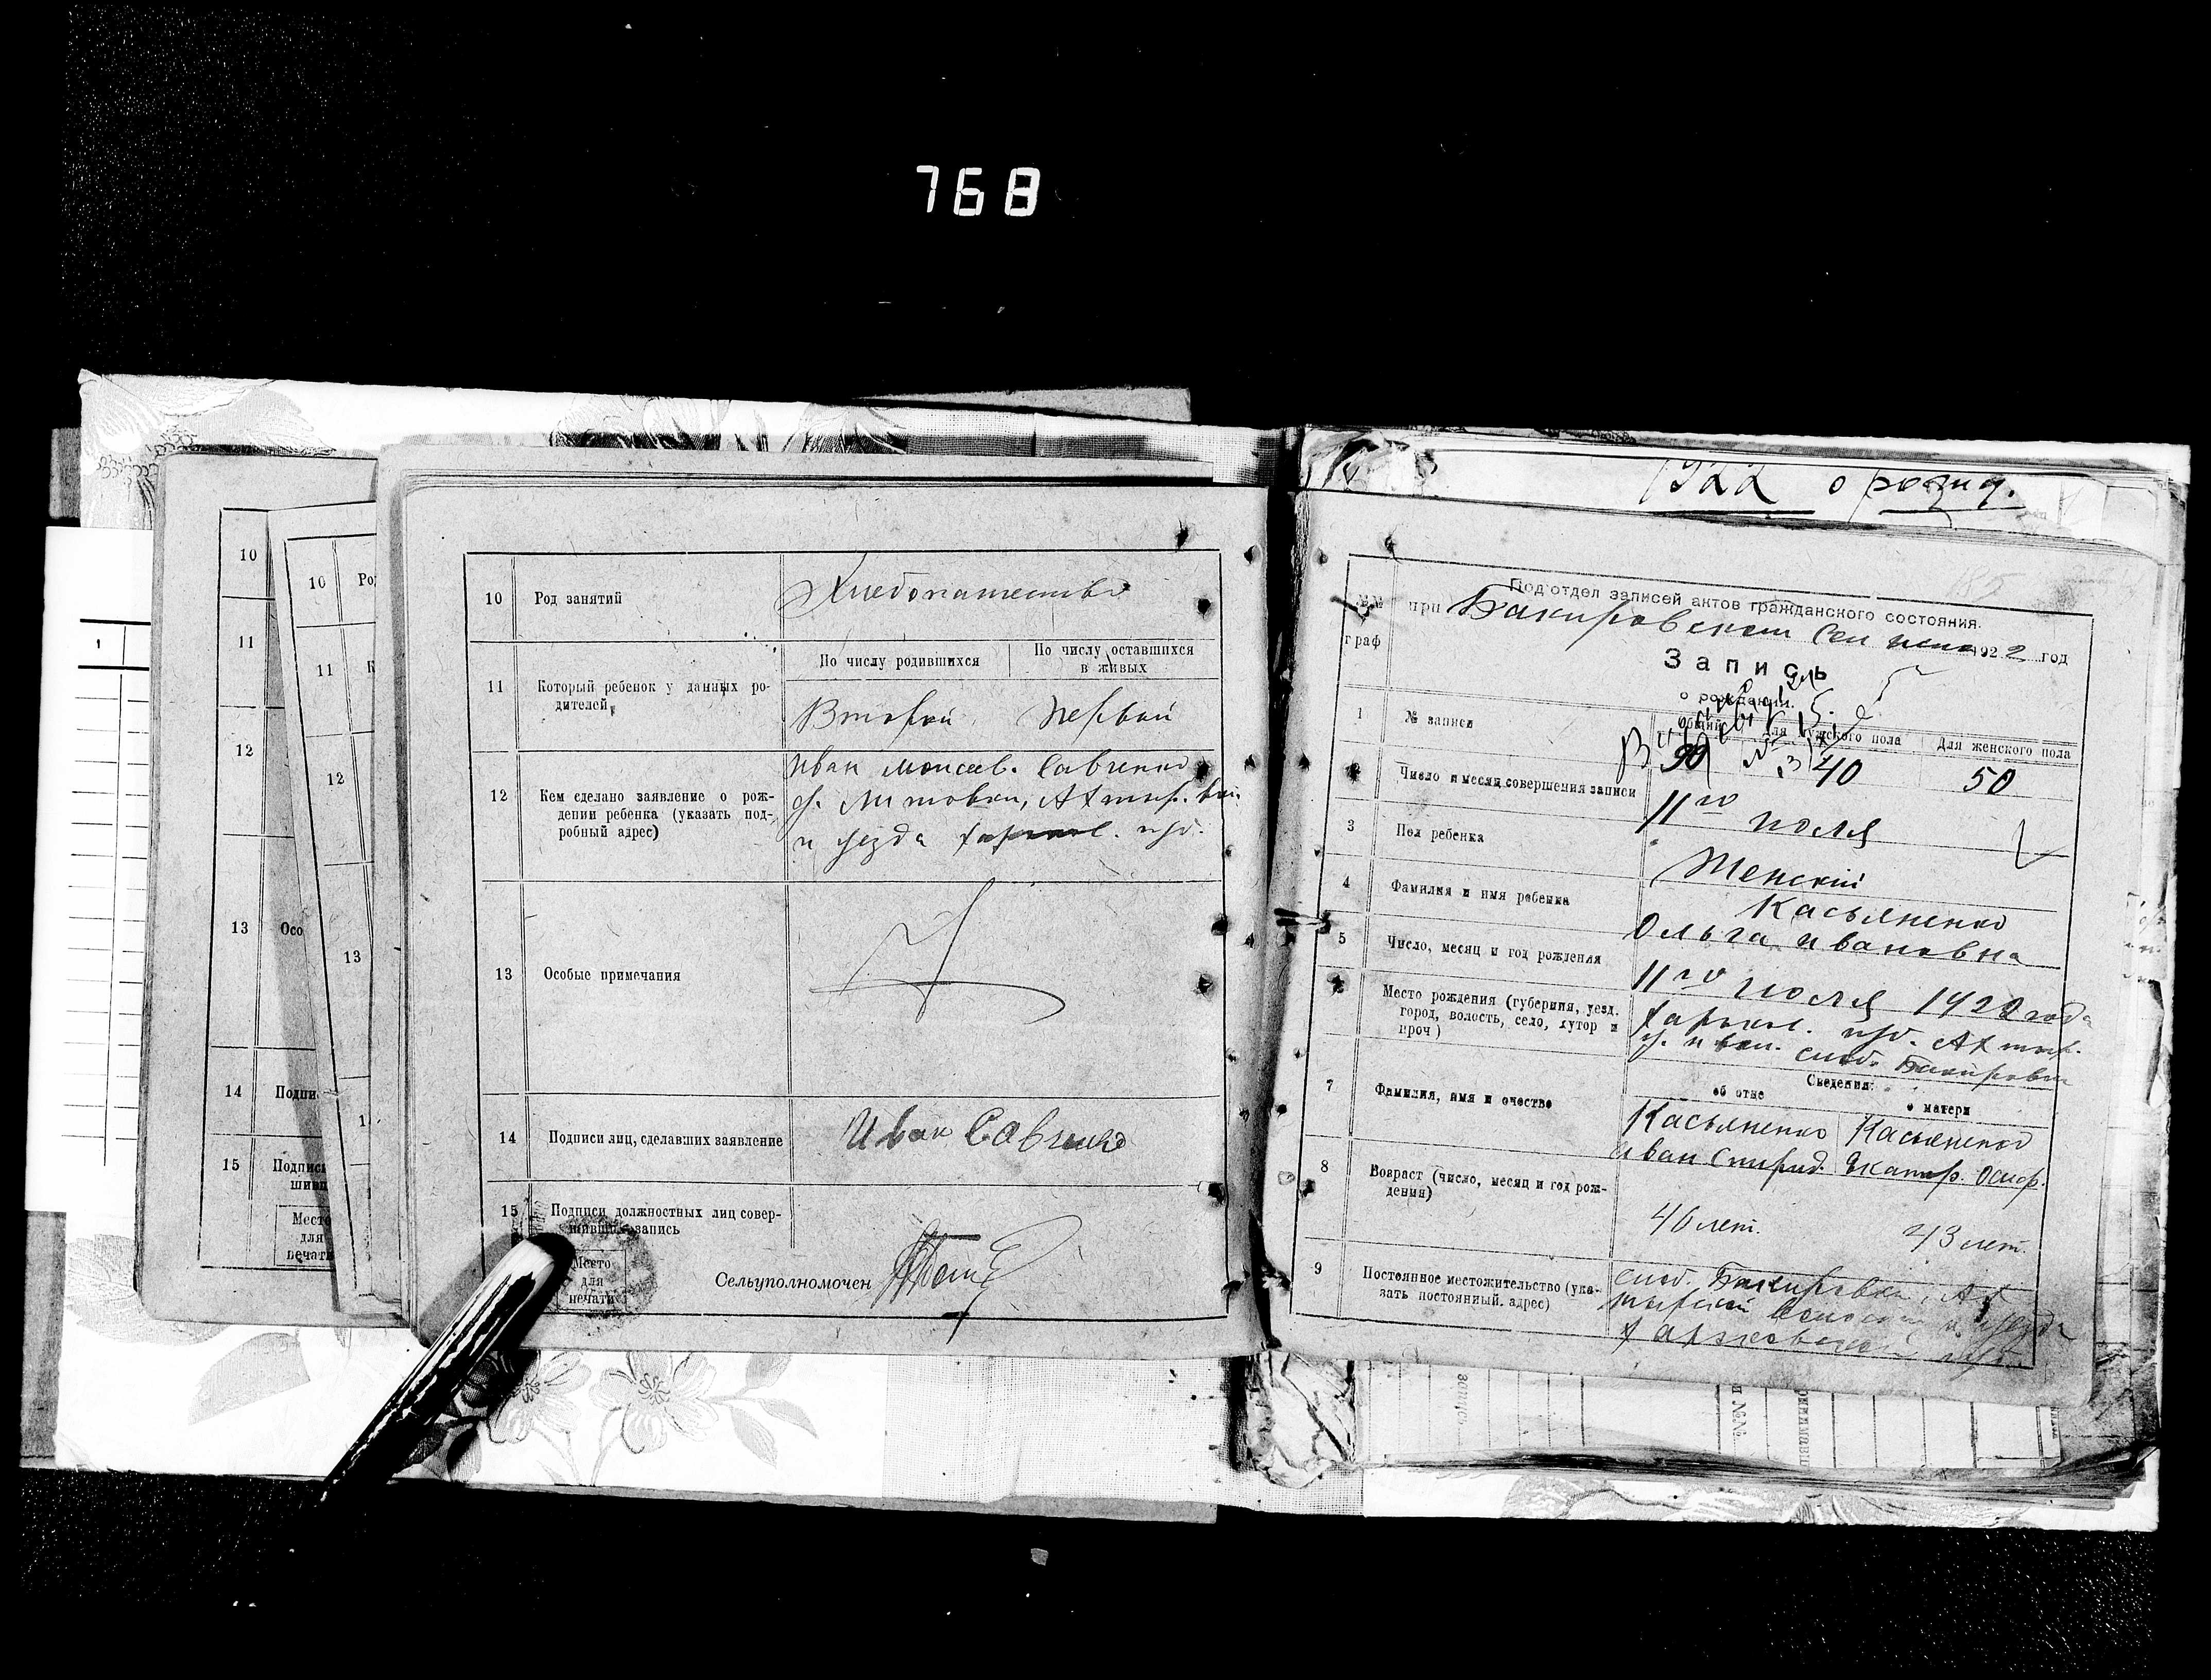 768
10
11
12
13
Осо
14
Подпи
15
Подписи
шивш
Место
для
печати
1
10
11
12
13
10 Род занятий Хлебопашество
11 Который ребенок у данных ро-
дителей
По числу родившихся По числу оставшихся
в живых
Второй Первый
12 Кем сделано заявление о рож-
дении ребенка (указать под-
робный адрес)
Иван Моисеев. Савченко
Литовки, Ахтыр. вол.
и уезда Харьков. губ.
13 Особые примечания
14 Подписи лиц, сделавших заявление Иван Савченко
15 Подписи должностных лиц совер-
шивших запись
Место
для
печати
Сельуполномочен
1922 о рожд.
Подотдел записей актов гражданского состояния.
№№
граф
при Бакировском 1922 год
Запись
о рождении.
1 № записи
Общий Для мужского пола Для женского пола
90 40 50
2 Число и месяц совершения записи 11го июля
3 Пол ребенка Женский
4 Фамилия и имя ребенка Касьяненко
Ольга Ивановна
5 Число, месяц и год рождения 11го июля 1922 года
6 Место рождения (губерния, уезд,
город, волость, село, хутор и
проч)
Харьков. губ. Ахтыр.
у. и вол. слоб. Бакировка
Сведения:
об отце о матери
7 Фамилия, имя и отчество
Касьяненко Касьяненко
Иван Спирид. Екатер. Осип.
8 Возраст (число, месяц и год рож-
дения)
40 лет. 43 лет.
9 Постоянное местожительство (ука-
зать постоянный адрес)
слоб. Бакировка, Ах
тырской волости и уезда
Харьковской губ.